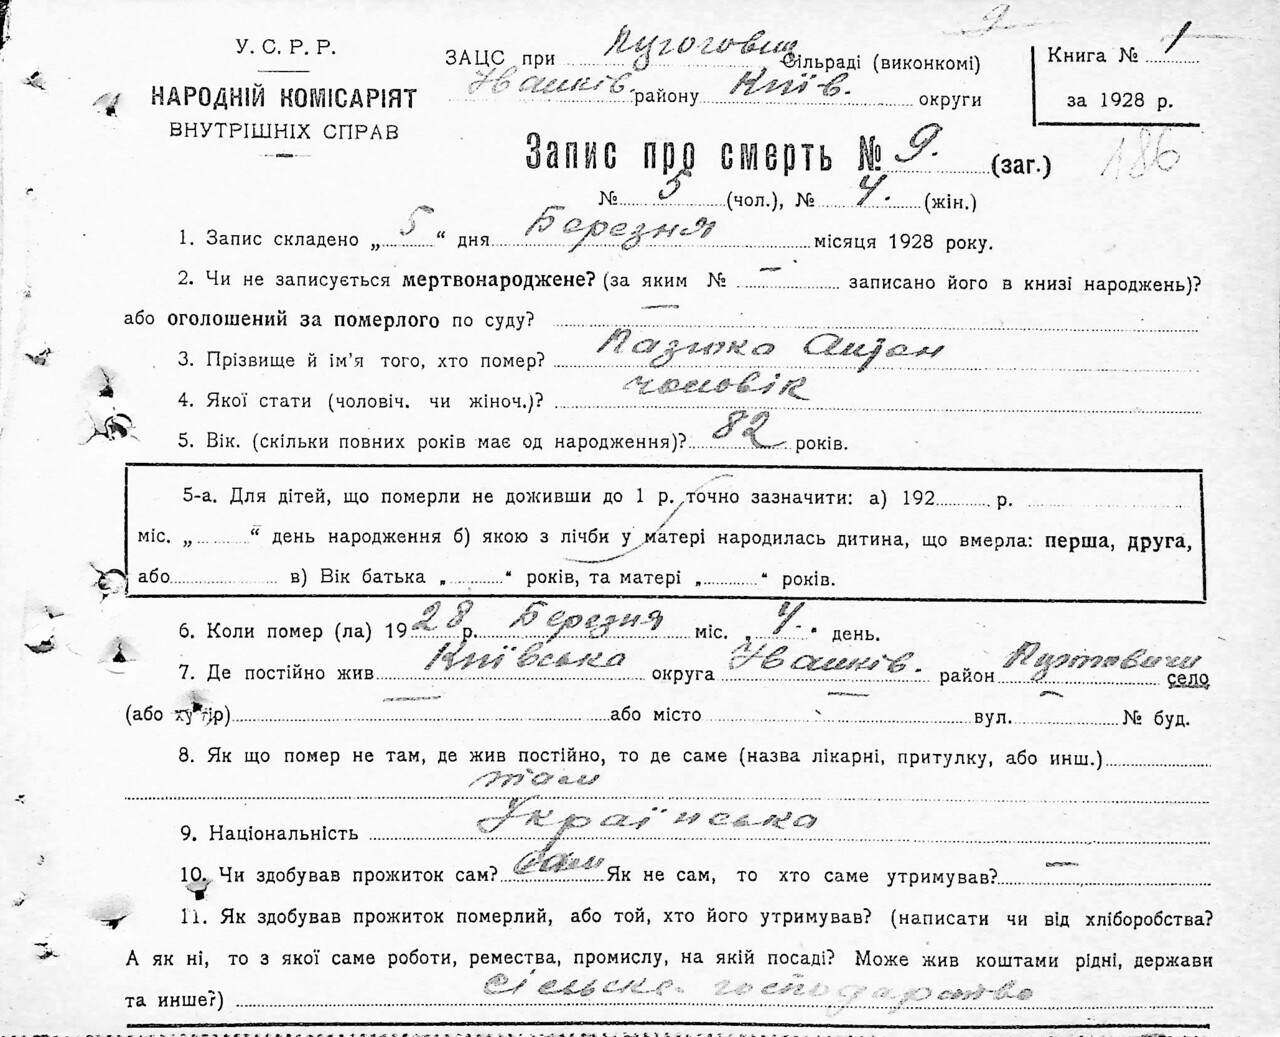 У. С. Р. Р.
НАРОДНІЙ КОМІСАРІЯТ
ВНУТРІШНІХ СПРАВ
ЗАЦС при Пуховичи Сільраді (виконкомі)
Иванків. району Київ. округи
Книга № 1
за 1928 р.
186
Запис про смерть № 9. (заг.)
№ 5 (чол.), № 4. (жін.)
1. Запис складено „5“ дня Березня місяця 1928 року.
2. Чи не записується мертвонароджене? (за яким № — записано його в книзі народжень)?
або оголошений за померлого по суду? —
3. Прізвище й ім'я того, хто помер? Антон
4. Якої стати (чоловіч. чи жіноч.)? чоловік
5. Вік. (скільки повних років має од народження)? 82 років.
5-а. Для дітей, що померли не доживши до 1 р. точно зазначити: а) 192 р.
міс. „ “ день народження б) якою з лічби у матері народилась дитина, що вмерла: перша, друга,
або в) Вік батька „ “ років, та матері „ “ років.
6. Коли помер (ла) 1928 р. Березня міс. „4.“ день.
7. Де постійно жив Київська округа Иванків. район село
(або хутір) — або місто — вул. — № буд.
8. Як що помер не там, де жив постійно, то де саме (назва лікарні, притулку, або инш.)
там
9. Національність Українська
10. Чи здобував прожиток сам? сам Як не сам, то хто саме утримував? —
11. Як здобував прожиток померлий, або той, хто його утримував? (написати чи від хліборобства?
А як ні, то з якої саме роботи, ремества, промислу, на якій посаді? Може жив коштами рідні, держави
та инше?) сільске господарство